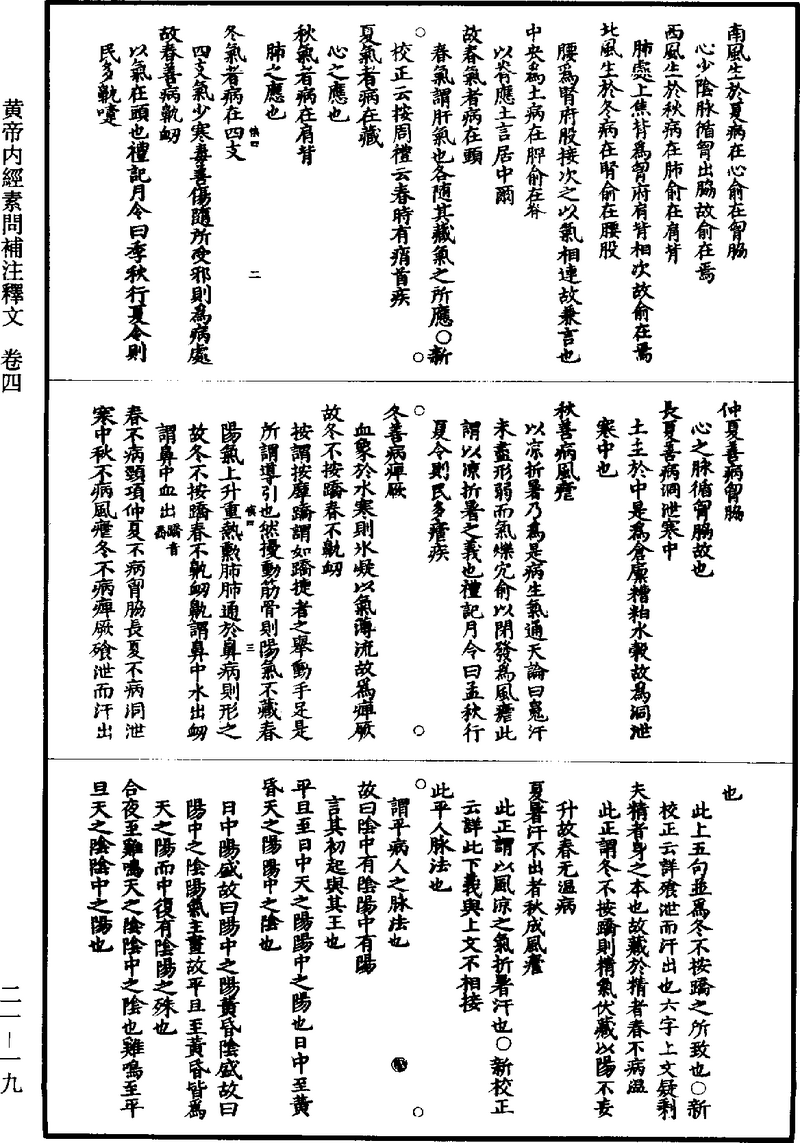 黄帝内經素問補注釋文　卷四
南風生於夏病在心俞在胷脇
心少陰脉循胷出脇故俞在焉
西風生於秋病在肺俞在肩背
肺處上焦背爲胷府肩背相次故俞在焉
北風生於冬病在腎俞在腰股
腰爲腎府股接次之以氣相連故兼言也
中央爲土病在脾俞在脊
以脊應土言居中爾
故春氣者病在頭
春氣謂肝氣也各隨其藏氣之所應○新
校正云按周禮云春時有痟首疾
夏氣者病在藏
心之應也
秋氣者病在肩背
肺之應也
冬氣者病在四支
四支氣少寒毒善傷隨所受邪則爲病處
故春善病鼽衂
以氣在頭也禮記月令曰季秋行夏令則
民多鼽嚏
二
仲夏善病胷脇
心之脉循胷脇故也
長夏善病洞泄寒中
土主於中是爲倉廩糟粕水穀故爲洞泄
寒中也
秋善病風瘧
以凉折暑乃爲是病生氣通天論曰魄汗
未盡形弱而氣爍穴俞以閉發爲風瘧此
謂以凉折暑之義也禮記月令曰孟秋行
夏令則民多瘧疾
冬善病痺厥
血象於水寒則氷凝以氣薄流故爲痺厥
故冬不按蹻春不鼽衂
按謂按摩蹻謂如蹻捷者之舉動手足是
所謂導引也然擾動筋骨則陽氣不藏春
陽氣上升重熱熏肺肺通於鼻病則形之
故冬不按蹻春不鼽衂鼽謂鼻中水出衂
謂鼻中血出蹻音
春不病頸項仲夏不病胷脇長夏不病洞泄
寒中秋不病風瘧冬不病痺厥飧泄而汗出
三
也
此上五句並爲冬不按蹻之所致也○新
校正云詳飧泄而汗出也六字上文疑剩
夫精者身之本也故藏於精者春不病溫
此正謂冬不按蹻則精氣伏藏以陽不妄
升故春无溫病
夏暑汗不出者秋成風瘧
此正謂以風凉之氣折暑汗也○新校正
云詳此下義與上文不相接
此平人脉法也
謂平病人之脉法也
故曰陰中有陰陽中有陽
言其初起與其王也
平旦至日中天之陽陽中之陽也日中至黄
昏天之陽陽中之陰也
日中陽盛故曰陽中之陽黄昏陰盛故曰
陽中之陰陽氣主晝故平旦至黄昏皆爲
天之陽而中復有陰陽之殊也
合夜至雞鳴天之陰陰中之陰也雞鳴至平
旦天之陰陰中之陽也
二一—一九